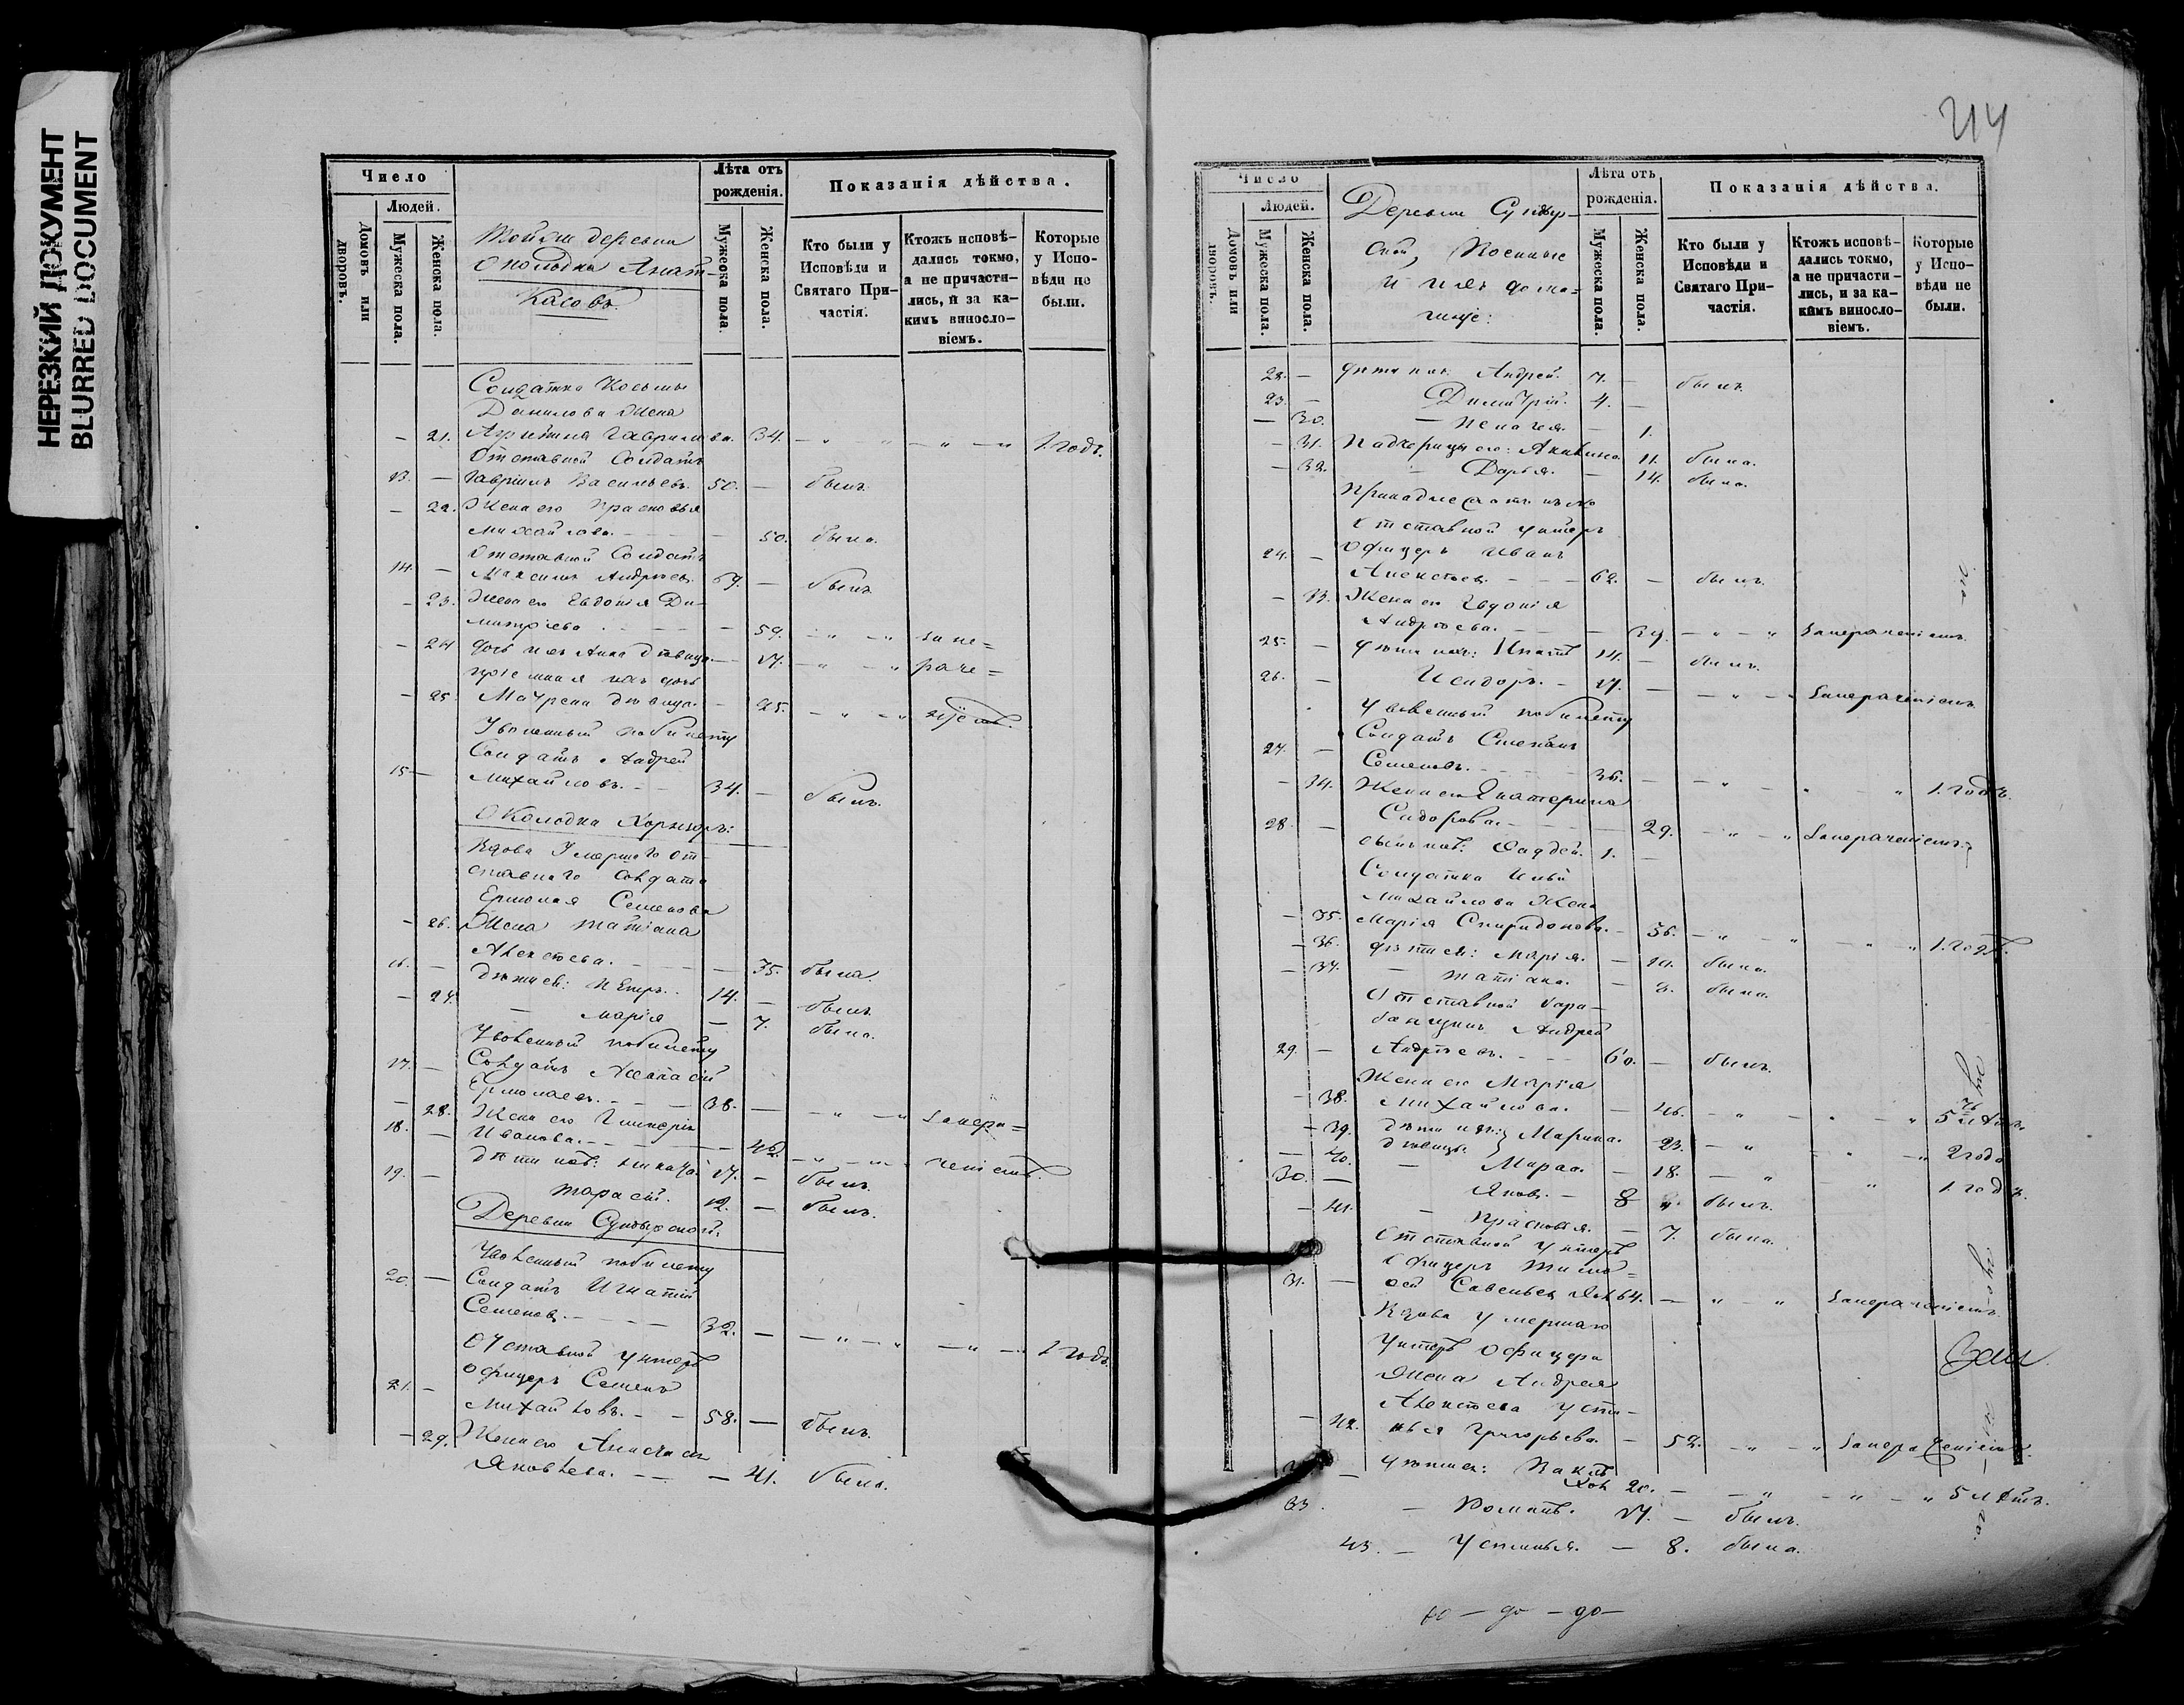 НЕРЕЗКИЙ ДОКУМЕНТ
BLURRED DOCUMENT
Число
Людей.
Домовъ или дворовъ.
Мужеска пола.
Женска пола.
Тойже деревни
околодка
касовъ
Лѣта отъ рожденія.
Мужеска пола.
Женска пола.
Показанія дѣйства.
Кто были у Исповѣди и Святаго Причастія.
Ктожъ исповѣдались токмо, а не причастились, и за какимъ винословіемъ.
Которые у Исповѣди не были.
Солдатка Косьмы
Данилова жена
– 21. Гаврилова. 34. – " " – " – " 1. годъ.
Отставной Солдатъ
13. – Гавріилъ Васильевъ. 50. – былъ.
– 22. Жена его Прасковья
Михайлова. – 50. была.
Отставной Солдатъ
14. – Максимъ Андреевъ. 69. – былъ.
– 23. Жена его Евдокія Ди-
митріева. – 59. – " – " за не=
– 24 дочь ихъ Анна дѣвица – 17. – " – " раче=
пріемная ихъ дочь
– 25. Матрена дѣвица. – 25. – " – " ніемъ.
Уволенный побилету
Солдатъ Андрей
15 – Михайловъ. – 34. – былъ.
Околодка
Вдова Умершаго от-
ставнаго Солдата
Ермолая Семенова
– 26. Жена Татіана
Алексѣева. – 75. была.
16. – дѣти ея: Петръ. 14. – былъ.
– 27. – Марія – 7. была.
Уволенный побилету
17. – Солдатъ Аѳанасій
Ермолаевъ. – 38. – – " – " Занера=
– 28. Жена его Гликерія
Ивановa. – 42. – " – " ченіемъ.
18. – дѣти ихъ: 17. – былъ.
19. – Тарасій. 12. – былъ.
Деревни
Уволенный побилету
20. – Солдатъ Игнатій
Семеновъ. – 32. – – " – " – " – 1 годъ.
Отставной унтеръ
офицеръ Семенъ
21. – Михайловъ. – 58. – былъ.
– 29. Жена его
Яковлева. – 41. была.
214
Число
Людей.
Домовъ или дворовъ.
Мужеска пола.
Женска пола.
Деревни
Военные
и ихъ дома=
чніе:
Лѣта отъ рожденія.
Мужеска пола.
Женска пола.
Показанія дѣйства.
Кто были у Исповѣди и Святаго Причастія.
Ктожъ исповѣдались токмо, а не причастились, и за какимъ винословіемъ.
Которые у Исповѣди не были.
22. – дѣти ихъ: Андрей. 7. – былъ.
23. – Димитрій. 4. –
– 30. – Пелагея. – 1.
– 31. Падчерицы его: Акилина. 11. была.
– 32. – Дарья. – 14. была.
Отставной унтеръ
24. – офицеръ Иванъ
Алексѣевъ. – 62. – былъ.
– 33. Жена его Евдокія
Андреева. – 39. – " – " Занераченіемъ.
25. – дѣти ихъ: Игнатій 14. – былъ.
26. – Исидоръ. – 17. – – " – " Занераченіемъ
Уволенный побилету
Солдатъ Степанъ
27. – Семеновъ. – 36. – – " – " – " 1. годъ.
– 34. Жена его Екатерина
Сидорова. – 29. – " – " Занераченіемъ.
28. – сынъ ихъ: Фаддей. 1. –
Солдатка Ильи
Михайлова Жена
– 35. Марія Спиридонова. – 36. – " " – " – " 1. годъ.
– 36. дѣти ея: Марія. – была.
– 37. – Татіана. – 8. была.
Отставной бара-
банщикъ Андрей
29. – Андреевъ. – 60. – былъ.
Жена его Марія
– 38. Михайлова. – 46. – " – " – " 5 лѣтъ.
– 39. дѣти ихъ: Марина. 23. – " – " – " 2 года
– 40. дѣвицы. – 18. – " " 1. годъ.
30. – Яковъ. – 8 " былъ.
– 41. – Прасковья. – 7. была.
Отставной Унтеръ
офицеръ Тимо=
31. – ѳей Савельевъ 64. – " – " Занераченіемъ.
Вдова умершаго
Унтеръ офицера
Жена Андрея
Алексѣева Усти-
– 42. нья Григорьева. – 52. – " – " Занераченіемъ.
– дѣти ея: 20. – – " – " – " 5 лѣтъ.
33. – Романъ. 17. – былъ.
43. – Устинья. – 8. была.